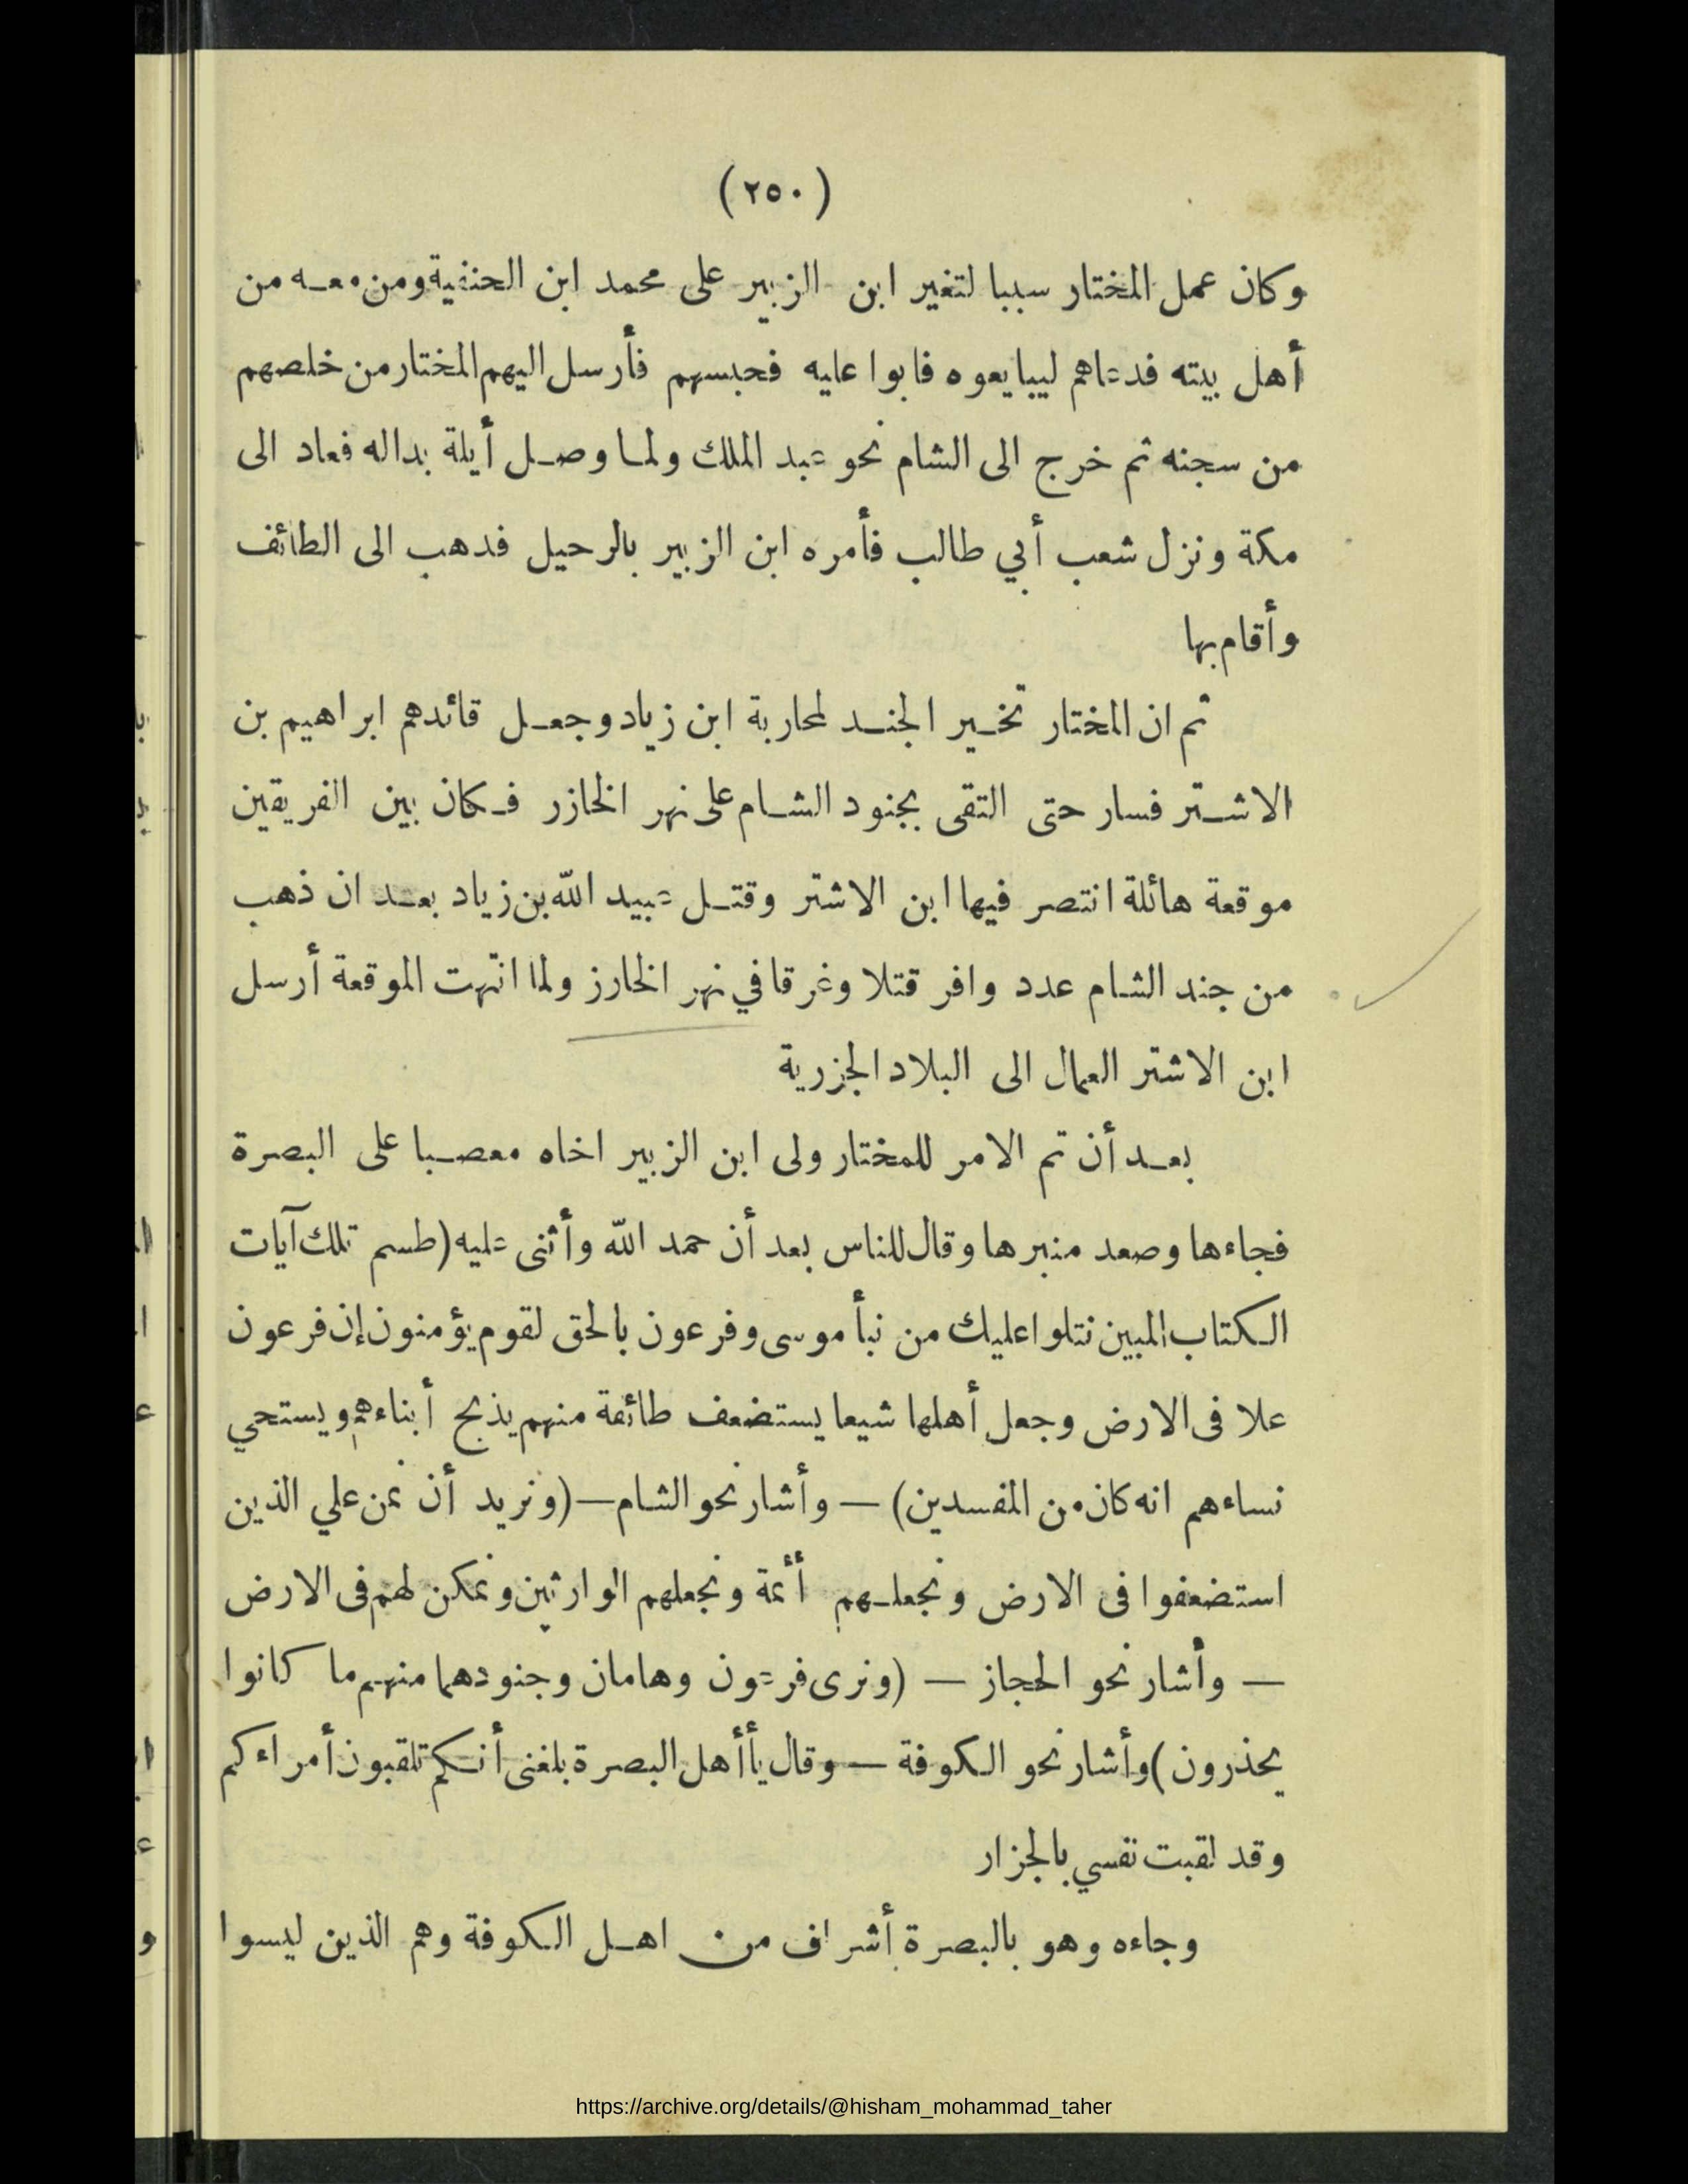 (٢٥٠)
وكان عمل المختار سببا لتغير ابن الزبير على محمد ابن الحنفية ومن معه من
أهل بيته فدعاهم ليبايعوه فابوا عليه فحبسهم فأرسل اليهم المختار من خلصهم
من سجنه ثم خرج الى الشام نحو عبد الملك ولما وصل أيلة بداله فعاد الى
مكة ونزل شعب أبي طالب فأمره ابن الزبير بالرحيل فدهب الى الطائف
وأقام بها
ثم ان المختار تخير الجند لمحاربة ابن زياد وجعل قائدهم ابراهيم بن
الاشتر فسار حتى التقى بجنود الشام على نهر الخازر فكان بين الفريقين
موقعة هائلة انتصر فيها ابن الاشتر وقتل عبيد الله بن زياد بعد ان ذهب
من جند الشام عدد وافر قتلا وغرقا في نهر الخارز ولما انتهت الموقعة أرسل
ابن الاشتر العمال الى البلاد الجزرية
بعد أن تم الامر للمختار ولى ابن الزبير اخاه مصعبا على البصرة
فجاءها وصعد منبرها وقال للناس بعد أن حمد الله وأثنى عليه (طسم تلك آيات
الكتاب المبين نتلوا عليك من نبأ موسى وفرعون بالحق لقوم يؤمنون إن فرعون
علا فى الارض وجعل أهلها شيعا يستضعف طائفة منهم يذبح أبناءهم ويستحي
نساءهم انه كان من المفسدين) — وأشار نحو الشام — (ونريد أن نمن علي الذين
استضعفوا فى الارض ونجعلهم أئمة ونجعلهم الوارثين ونمكن لهم فى الارض
— وأشار نحو الحجاز — (ونرى فرعون وهامان وجنودهما منهم ما كانوا
يحذرون) وأشار نحو الكوفة — وقال يأأهل البصرة بلغنى أنكم تلقبون أمراءكم
وقد لقبت نفسي بالجزار
وجاءه وهو بالبصرة أشراف من اهل الكوفة وهم الذين ليسوا
https://archive.org/details/@hisham_mohammad_taher